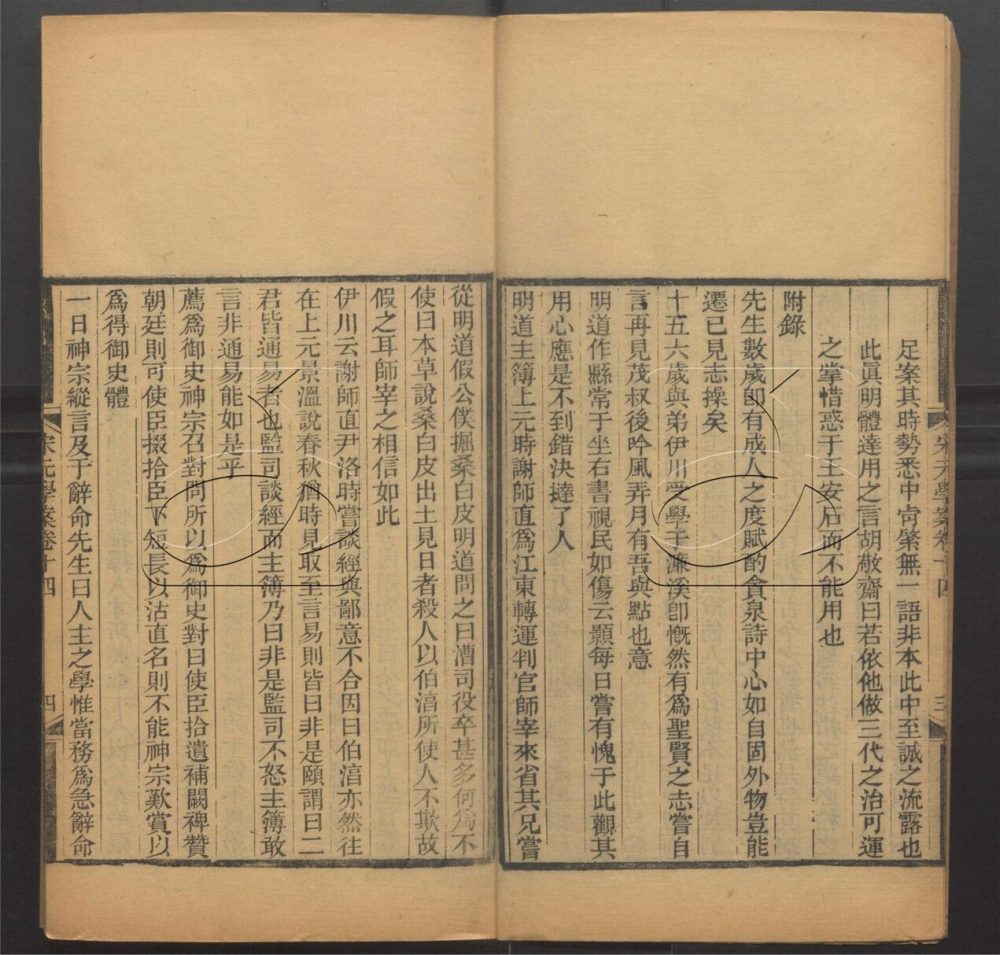 宋元學案卷十四
三
足案其時勢悉中肯綮無一語非本此中至誠之流露也
此眞明體達用之言胡敬齋曰若依他做三代之治可運
之掌惜惑于王安石而不能用也
附錄
先生數歲卽有成人之度賦酌貪泉詩中心如自固外物豈能
遷已見志操矣
十五六歲與弟伊川受學于濂溪卽慨然有爲聖賢之志嘗自
言再見茂叔後吟風弄月有吾與點也意
明道作縣常于坐右書視民如傷云顥每日嘗有愧于此觀其
用心應是不到錯決撻了人
明道主簿上元時謝師直爲江東轉運判官師宰來省其兄嘗
從明道假公僕掘桑白皮明道問之曰漕司役卒甚多何爲不
使曰本草說桑白皮出土見日者殺人以伯淳所使人不欺故
假之耳師宰之相信如此
伊川云謝師直尹洛時嘗談經與鄙意不合因曰伯淳亦然往
在上元景溫說春秋猶時見取至言易則皆曰非是頤謂曰二
君皆通易者也監司談經而主簿乃曰非是監司不怒主簿敢
言非通易能如是乎
薦爲御史神宗召對問所以爲御史對曰使臣拾遺補闕裨贊
朝廷則可使臣掇拾臣下短長以沽直名則不能神宗歎賞以
爲得御史體
一日神宗縱言及于辭命先生曰人主之學惟當務爲急辭命
宋元學案卷十四
四